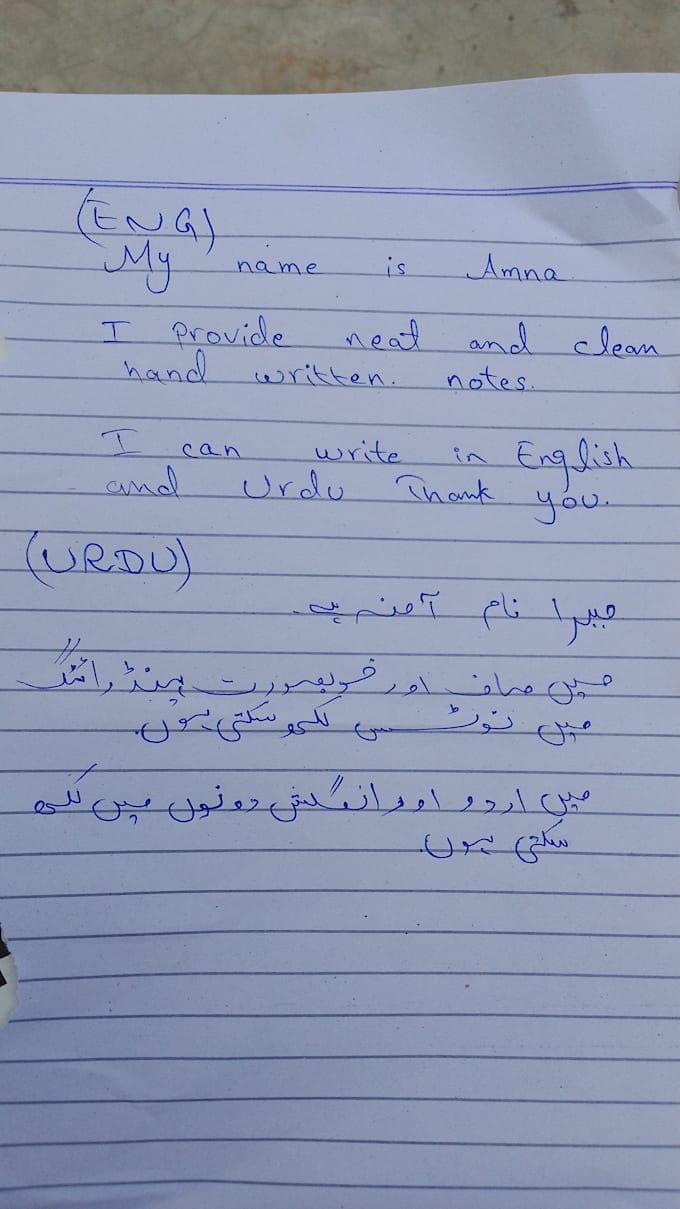 (ENG)
My name is Amna
I provide neat and clean
hand written. notes.
I can write in English
and Urdu Thank you.
(URDU)
میرا نام آمنہ ہے۔
میں صاف اور خوبصورت ہینڈ رائٹنگ
میں نوٹس لکھ سکتی ہوں۔
میں اردو اور انگلش دونوں میں لکھ
سکتی ہوں۔